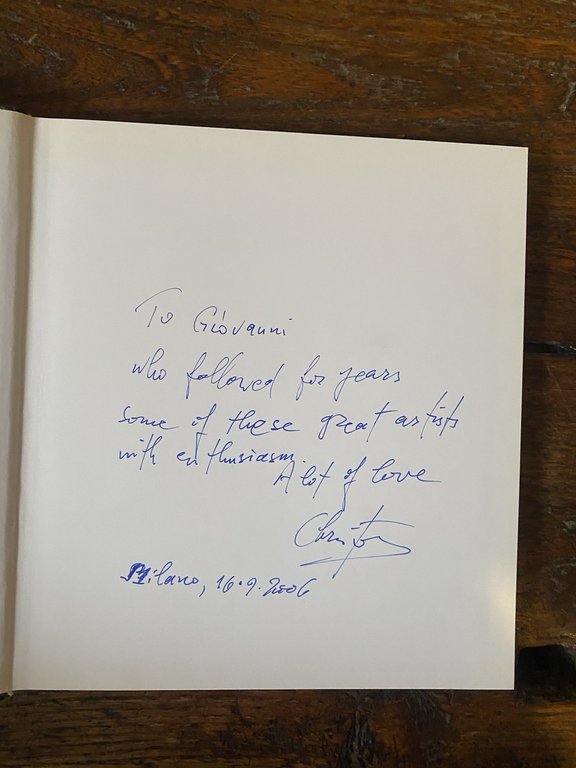 To Giovanni
who followed for years
some of these great artists
with enthusiasm.
A lot of love
Milano, 16.9.2006